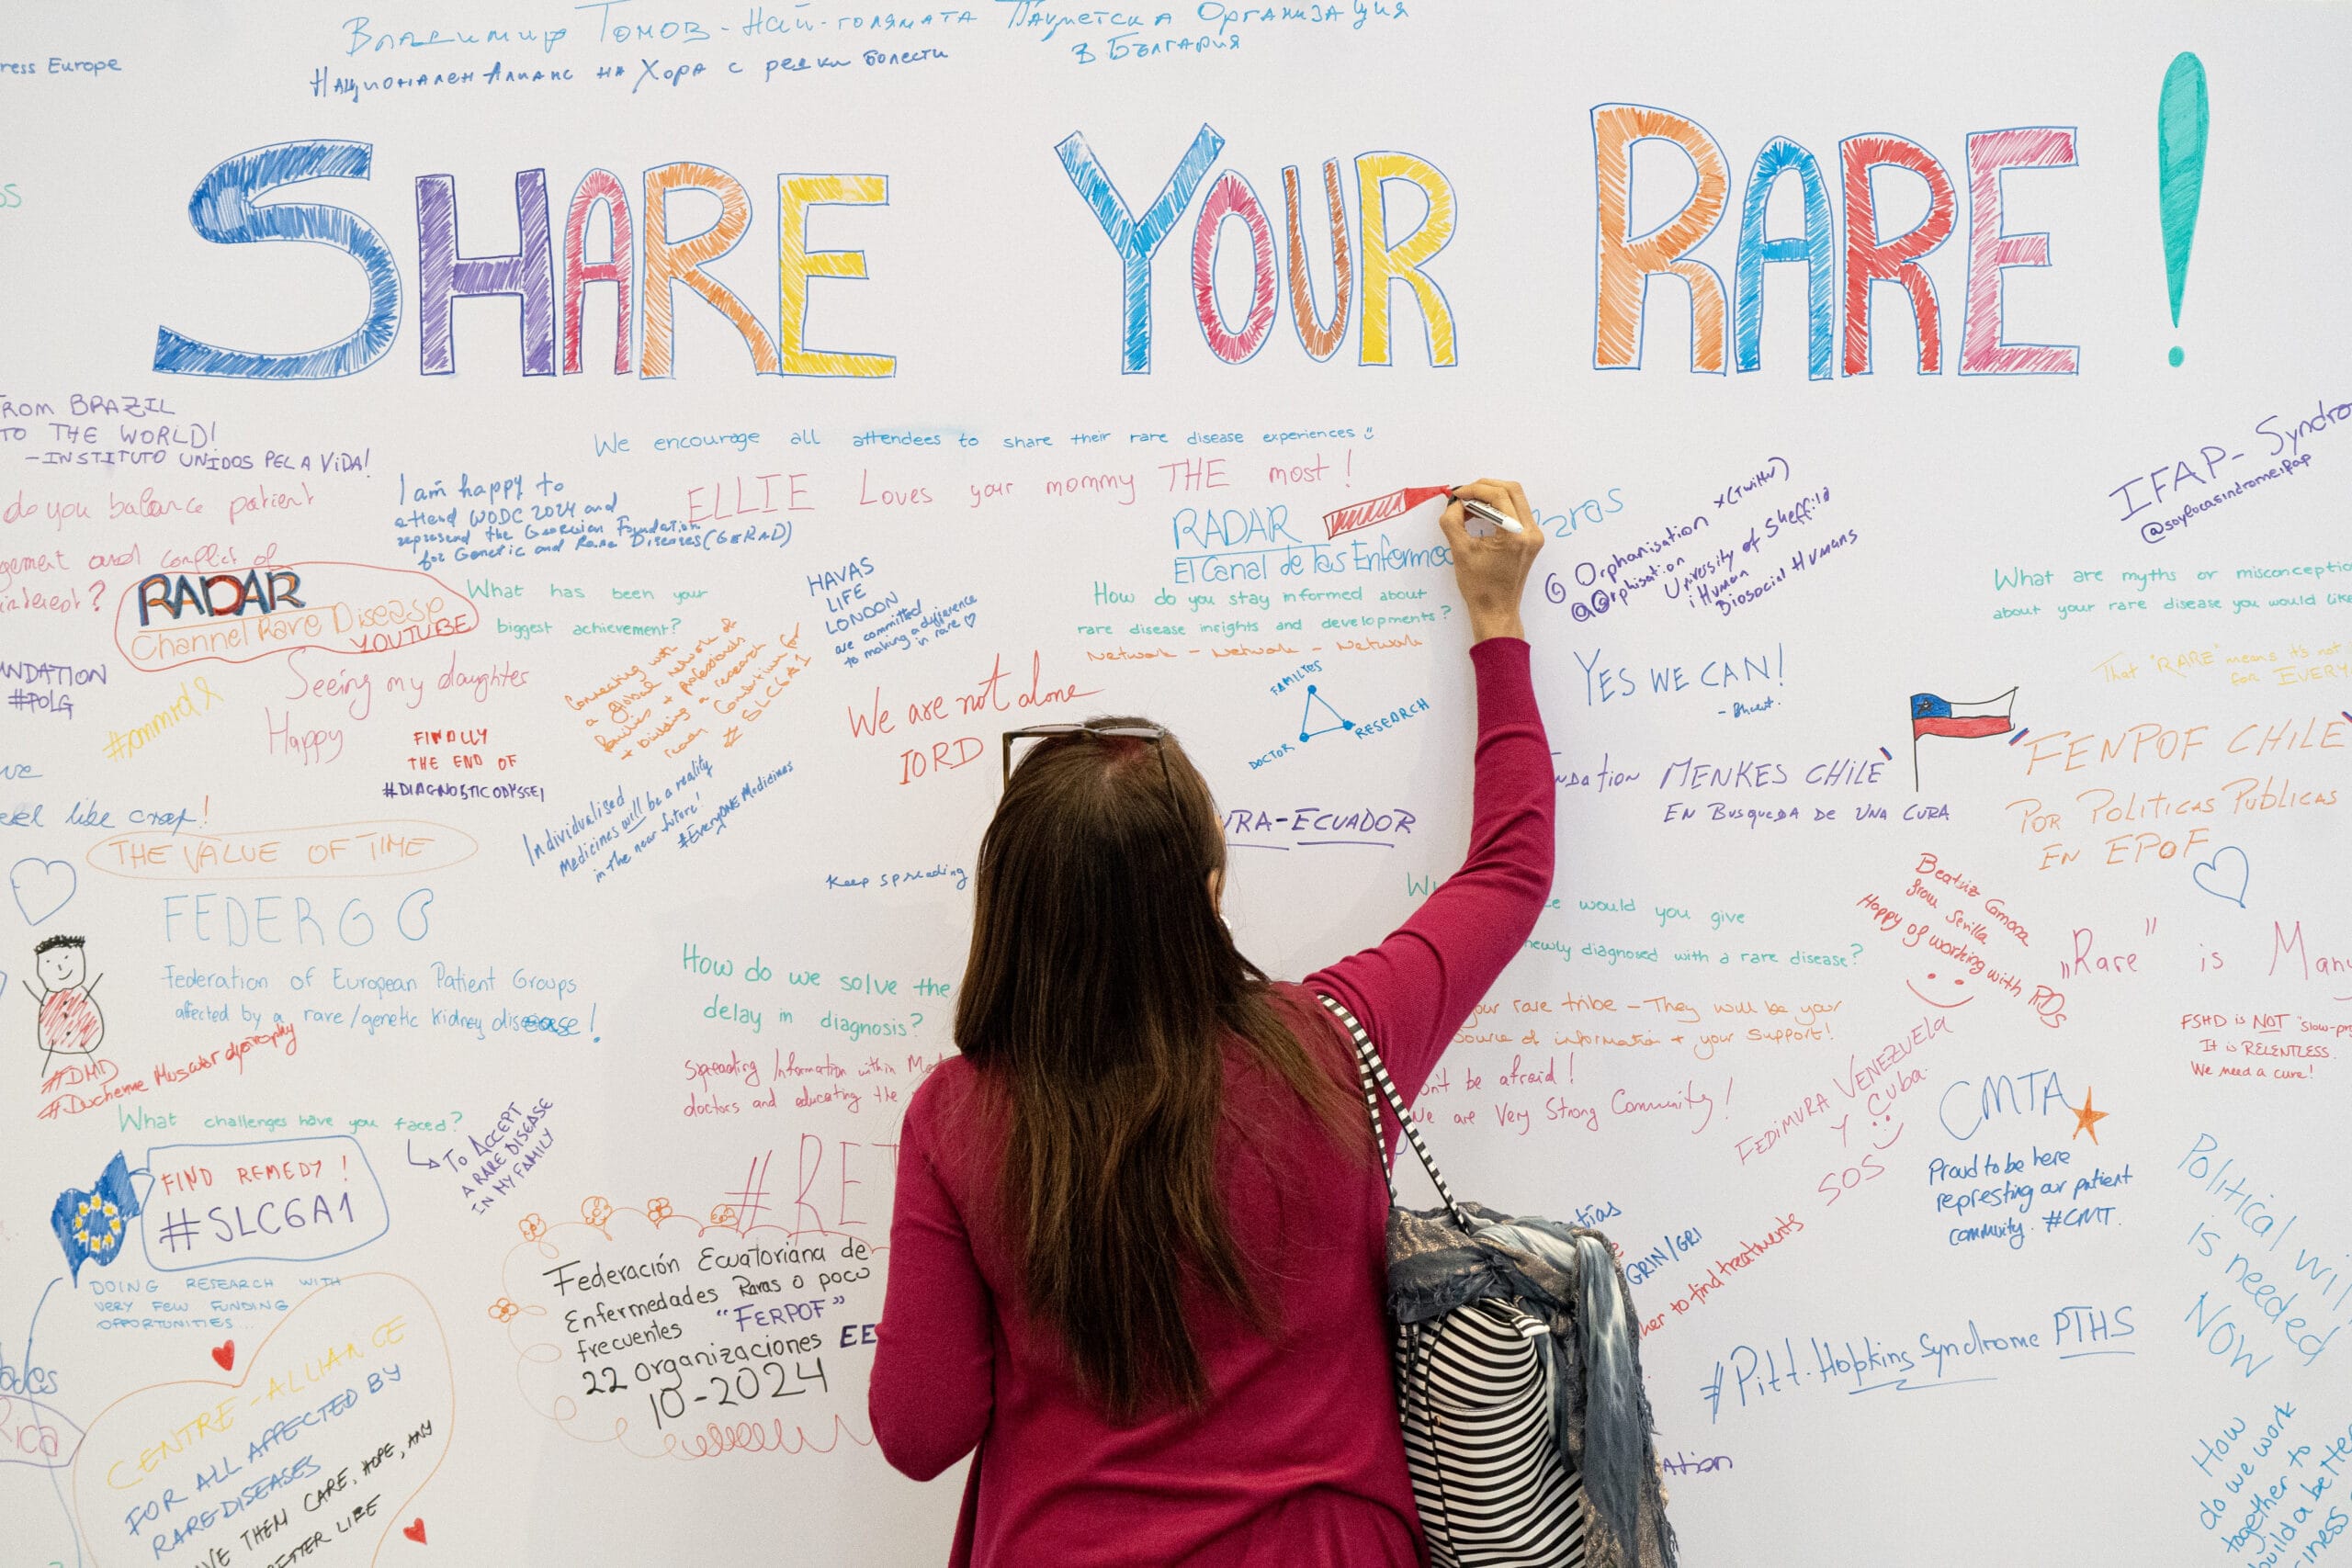 Владимир Томов - Най-голямата Пациетска Организация
в България
Национален Алианс на Хора с редки болести
ress Europe
SHARE YOUR RARE!
FROM BRAZIL
TO THE WORLD!
-INSTITUTO UNIDOS PELA VIDA!
We encourage all attendees to share their rare disease experiences
ELLIE Loves your mommy THE most!
I am happy to
attend WODC 2024 and
represend the Georgian Foundation
for Genetic and Rare Diseases (GeRaD)
do you balance patient
gement and conflict of
interest?
RADAR
Channel Rare Disease
YOUTUBE
RADAR
El Canal de las Enferme
Raras
What has been your
biggest achievement?
Seeing my daughter
Happy
Connecting with
a global network of
families + professionals
+ building a research
Consortium for
# SLC6A1
HAVAS
LIFE
LONDON
are committed
to making a difference
in rare ♡
How do you stay informed about
rare disease insights and developments?
Network - Network - Network
FAMILIES
DOCTOR
RESEARCH
@Orphanisation X(Twitter)
University of Sheffild
iHuman
Biosocial Humans
IFAP-Syndro
@soylocasindromeifap
What are myths or misconceptio
about your rare disease you would like
That "RARE" means it's not
for EVERY
NDATION
#POLG
FINALLY
THE END OF
#DIAGNOSTICODYSSEY
We are not alone
IORD
YES WE CAN!
ndation MENKES CHILE
EN BUSQUEDA DE UNA CURA
FENPOF CHILE
POR POLITICAS PUBLICAS
EN EPOF
eel like crap!
THE VALUE OF TIME
Individualised
Medicines will be a reality
in the near future!
#EveryONE Medicines
RA-ECUADOR
Keep spreading
FEDERG
Federation of European Patient Groups
affected by a rare/genetic kidney disease!
#DMD
#Duchenne Muscular dystrophy
How do we solve the
delay in diagnosis?
Spreading Information within Me
doctors and educating the
would you give
newly diagnosed with a rare disease?
our rare tribe - They will be your
source of information + your support!
on't be afraid!
We are Very Strong Community!
Beatriz
from Sevilla
Happy of working with RDs
"Rare" is Many
FSHD is NOT "slow-pr
It is RELENTLESS.
We need a cure!
What challenges have you faced?
TO ACCEPT
A RARE DISEASE
IN MY FAMILY
FIND REMEDY!
#SLC6A1
DOING RESEARCH WITH
VERY FEW FUNDING
OPPORTUNITIES...
#RE
FEDIMURA VENEZUELA
Y Cuba
SOS
CMTA
Proud to be here
represting our patient
commuity. #CMT.
Political wi
is needed
NOW
Federación Ecuatoriana de
Enfermedades Raras o poco
frecuentes "FERPOF"
22 organizaciones EE
10-2024
GRIN/GRI
her to find treatments
#Pitt-Hopkins Syndrome PTHS
CENTRE-ALLIANCE
FOR ALL AFFECTED BY
RARE DISEASES
VE THEM CARE, HOPE, ANY
ETTER LIFE
ation
How
do we work
together to
build a bette